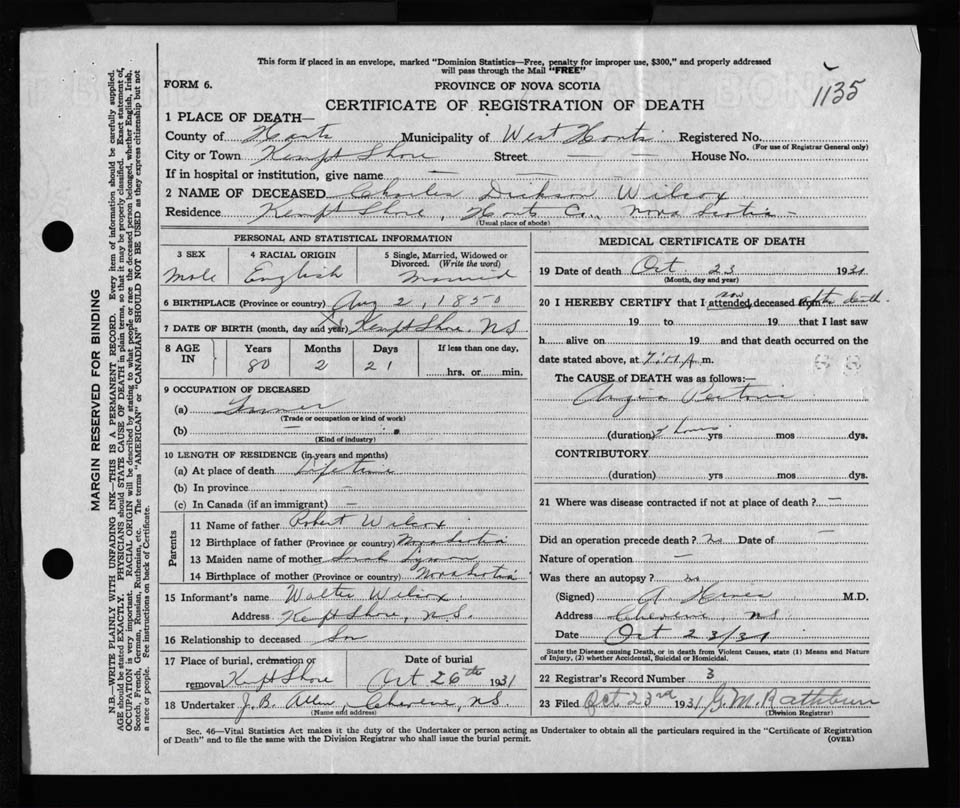 This form if placed in an envelope, marked "Dominion Statistics—Free, penalty for improper use, $300," and properly addressed
will pass through the Mail "FREE"
FORM 6.
PROVINCE OF NOVA SCOTIA
1135
CERTIFICATE OF REGISTRATION OF DEATH
1 PLACE OF DEATH—
County of Hants Municipality of West Hants Registered No.
(For use of Registrar General only)
City or Town Kempt Shore Street — — House No.
If in hospital or institution, give name — —
2 NAME OF DECEASED Charles Dickson Wilcox
Residence Kempt Shore, Hants Co., Nova Scotia -
(Usual place of abode)
PERSONAL AND STATISTICAL INFORMATION
3 SEX 4 RACIAL ORIGIN 5 Single, Married, Widowed or Divorced. (Write the word)
Male English Married
6 BIRTHPLACE (Province or country) Aug 2, 1850
7 DATE OF BIRTH (month, day and year) Kempt Shore. NS
8 AGE IN Years Months Days If less than one day,
80 2 21 hrs. or min.
9 OCCUPATION OF DECEASED
(a) Farmer
(Trade or occupation or kind of work)
(b) —
(Kind of industry)
10 LENGTH OF RESIDENCE (in years and months)
(a) At place of death Lifetime
(b) In province —
(c) In Canada (if an immigrant) —
Parents
11 Name of father Robert Wilcox
12 Birthplace of father (Province or country) Nova Scotia
13 Maiden name of mother Sarah
14 Birthplace of mother (Province or country) Nova Scotia
15 Informant's name Walter Wilcox
Address Kempt Shore, N.S.
16 Relationship to deceased Son
17 Place of burial, cremation or Date of burial
removal Kempt Shore Oct 26th 1931
18 Undertaker J. B. Allen, Cheverie, N.S.
(Name and address)
MEDICAL CERTIFICATE OF DEATH
19 Date of death Oct 23 1931
(Month, day and year)
20 I HEREBY CERTIFY that I attended deceased from after death
saw
19 to 19 that I last saw
h alive on 19 and that death occurred on the
date stated above, at m.
The CAUSE of DEATH was as follows:—
Angina Pectoris
(duration) 2 hours yrs mos dys.
CONTRIBUTORY
(duration) yrs mos dys.
21 Where was disease contracted if not at place of death? —
Did an operation precede death? no Date of —
Nature of operation —
Was there an autopsy? no
(Signed) A M.D.
Address Cheverie, N.S.
Date Oct 23/31
State the Disease causing Death, or in death from Violent Causes, state (1) Means and Nature
of Injury, (2) whether Accidental, Suicidal or Homicidal.
22 Registrar's Record Number 3
23 Filed Oct 23rd 1931 G. M. Rathbun
(Division Registrar)
Sec. 46—Vital Statistics Act makes it the duty of the Undertaker or person acting as Undertaker to obtain all the particulars required in the "Certificate of Registration
of Death" and to file the same with the Division Registrar who shall issue the burial permit.
(OVER)
MARGIN RESERVED FOR BINDING
N.B.—WRITE PLAINLY WITH UNFADING INK—THIS IS A PERMANENT RECORD. Every item of information should be carefully supplied.
AGE should be stated EXACTLY. PHYSICIANS should STATE CAUSE OF DEATH in plain terms, so that it may be properly classified. Exact statement of
OCCUPATION is very important. RACIAL ORIGIN will be described by stating to what people or race the deceased person belonged, whether English, Irish,
Scotch, French, German, Russian, Ruthenian, etc. The terms "AMERICAN" or "CANADIAN" SHOULD NOT BE USED as they express citizenship but not
a race or people. Fee instructions on back of Certificate.